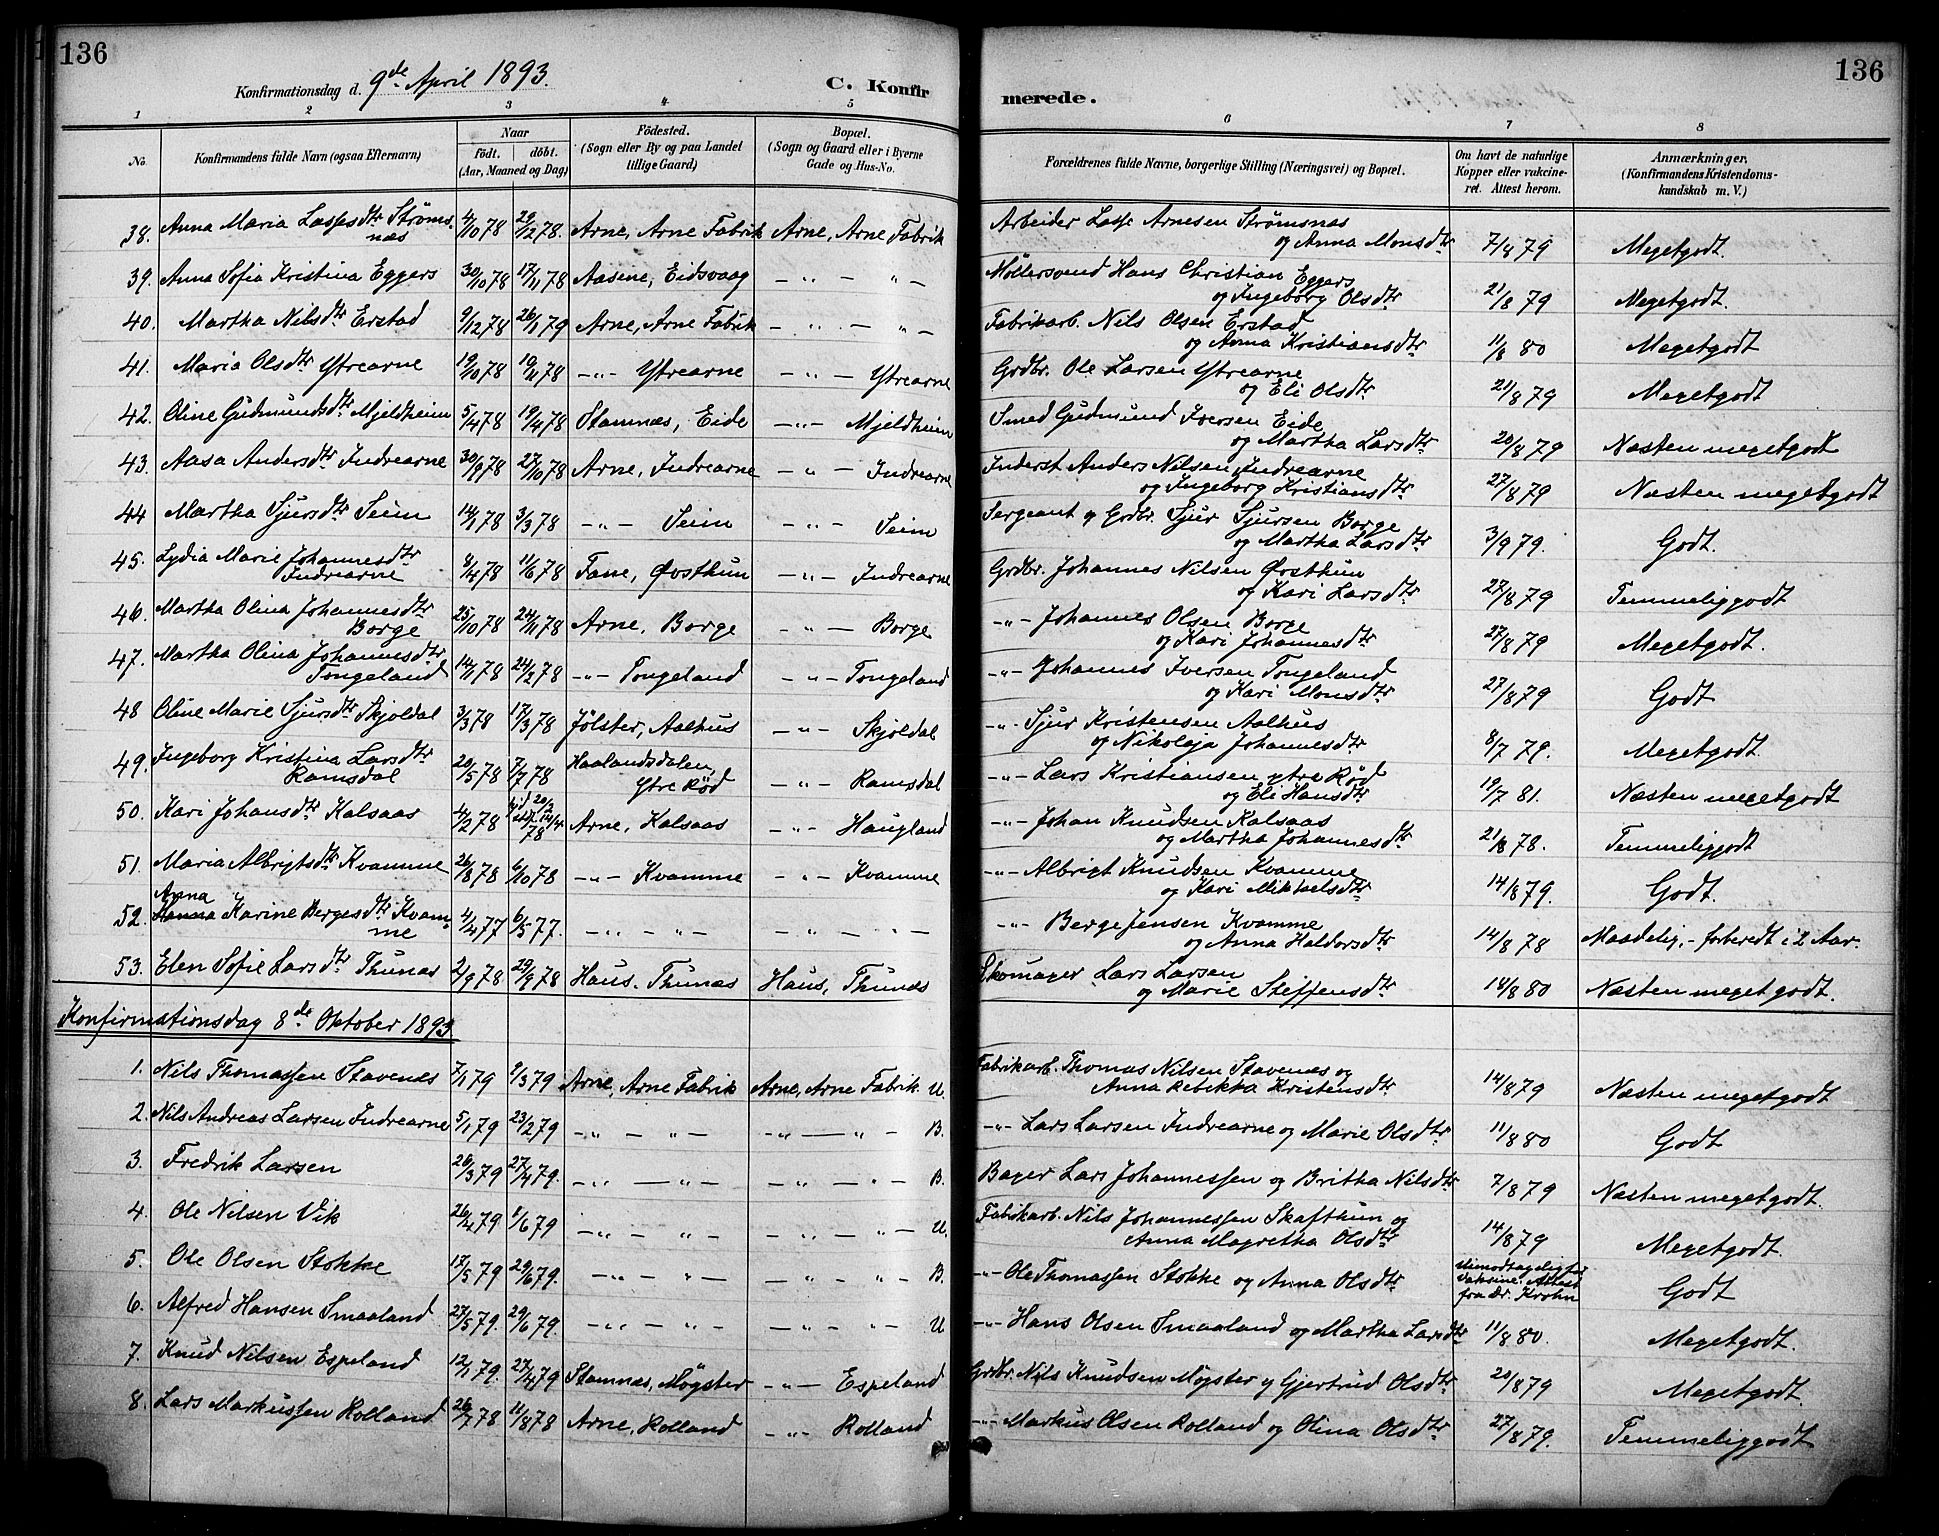 136
136
Konfirmationsdag d. 9de April 1893.
C. Konfirmerede.
1 2 3 4 5 6 7 8
No. Konfirmandens fulde Navn (ogsaa Efternavn) Naar født. døbt. (Aar, Maaned og Dag) Födested. (Sogn eller By og paa Landet tillige Gaard) Bopæl. (Sogn og Gaard eller i Byerne Gade og Hus-No. Forældrenes fulde Navne, borgerlige Stilling (Næringsvei) og Bopæl. Om havt de naturlige Kopper eller vakcineret. Attest herom. Anmærkninger. (Konfirmandens Kristendomskundskab m. V.)
38. Anna Maria Lassesdtr Strømsnæs 4/10 78 29/12 78. Arne, Arne Fabrik Arne, Arne Fabrik Arbeider Lasse Arnesen Strømsnæs og Anna Monsdtr 7/8 79 Megetgodt.
39. Anna Sofia Kristina Eggers 30/10 78 17/11 78 Aasene, Eidsvaag — " — " — Møllersvend Hans Christian Eggers og Ingeborg Olsdtr 21/8 79 Megetgodt.
40. Martha Nilsdtr Erstad 9/12 78 26/1 79 Arne, Arne Fabrik — " — " — Fabrikarb. Nils Olsen Erstad og Anna Kristiansdtr 11/8 80 Megetgodt
41. Maria Olsdtr Ytrearne 19/10 78 10/11 78 — " — Ytrearne — " — Ytrearne Grdbr. Ole Larsen Ytrearne og Eli Olsdtr 21/8 79 Megetgodt
42. Oline Gudmundsdtr Mjeldheim 5/4 78 19/4 78 Stamnæs, Eide — " — Mjeldheim Smed Gudmund Iversen Eide og Martha Larsdtr 20/8 79 Næsten megetgodt
43. Aasa Andersdtr Indrearne 30/9 78 27/10 78 Arne, Indrearne — " — Indrearne Inderst Anders Nilsen Indrearne og Ingeborg Kristiansdtr 27/8 79 Næsten megetgodt
44 Martha Sjursdtr Seim 14/1 78 3/3 78 — " — Seim — " — Seim Sergeant og Grdbr. Sjur Sjursen Borge og Martha Larsdtr 3/9 79. Godt.
45. Lydia Marie Johannesdtr Indrearne 9/4 78 11/6 78 Fane, Øvsthun — " — Indrearne Grdbr. Johannes Nilsen Øvsthun og Kari Larsdtr 27/8 79 Temmeliggodt
46. Martha Olina Johannesdtr Borge 25/10 78 24/11 78 Arne, Borge — " — Borge — " — Johannes Olsen Borge og Kari Johannesdtr 27/8 79 Megetgodt.
47. Martha Olina Johannesdtr Tongeland 14/1 78 24/2 78 — " — Tongeland — " — Tongeland — " — Johannes Iversen Tongeland og Kari Monsdtr 27/8 79 Godt
48 Oline Marie Sjursdtr Skjoldal 3/3 78 17/3 78 Jølster, Aalhus — " — Skjoldal — " — Sjur Kristensen Aalhus og Nikolaja Johannesdtr 8/7 79. Megetgodt.
49. Ingeborg Kristina Larsdtr Ramsdal 20/5 78 7/7 78 Haalandsdalen, Ytre Rød — " — Ramsdal — " — Lars Kristiansen ytre Rød og Eli Hansdtr 19/7 81. Næsten megetgodt
50. Kari Johansdtr Kalsaas 4/2 78 78 Arne, Kalsaas — " — Haugland — " — Johan Knudsen Kalsaas og Martha Johannesdtr 21/8 78. Temmeliggodt
51. Maria Albrigtsdtr Kvamme 26/8 78 6/10 78 — " — Kvamme — " — Kvamme — " — Albrigt Knudsen Kvamme og Kari Mikkelsdtr 14/8 79. Godt.
52. Anna Karine Bergesdtr Kvamme 4/4 77 6/5 77. — " — " — — " — " — — " — Berge Jensen Kvamme og Anna Haldorsdtr 14/8 78 Maadelig, - forberedt i 2 Aar.
53. Elen Sofie Larsdtr Thunæs 2/9 78 29/9 78 Haus. Thunæs Haus, Thunæs Skomager Lars Larsen og Marie Steffensdtr 14/8 80 Næsten megetgodt.
Konfirmationsdag 8de Oktober 1893
1. Nils Thomassen Stavenæs 7/1 79 9/3 79 Arne, Arne Fabrik Arne, Arne Fabrik U. Fabrikarb. Thomas Nilsen Stavenæs og Anna Rebekka Kristensdtr 14/8 79 Næsten megetgodt
2. Nils Andreas Larsen Indrearne 5/1 79 23/2 79 — " — " — — " — " — B. — " — Lars Larsen Indrearne og Marie Olsdtr 11/8 80 Godt
3. Fredrik Larsen 26/3 79 27/4 79. — " — " — — " — " — B. Bager Lars Johannessen og Britha Nilsdtr 7/8 79 Næsten megetgodt.
4. Ole Nilsen Vik 26/4 79 1/6 79 — " — " — — " — " — U. Fabrikarb. Nils Johannessen Skafthun og Anna Magretha Olsdtr 14/8 79 Megetgodt.
5. Ole Olsen Stokke 17/5 79 29/6 79. — " — " — — " — " — B. — " — Ole Thomassen Stokke og Anna Olsdtr uimodtagelig for vaksine. Attest fra Dr. Krohn Godt
6. Alfred Hansen Smaaland 27/5 79. 29/6 79. — " — " — — " — " — U — " — Hans Olsen Smaaland og Martha Larsdtr 11/8 80. Megetgodt.
7. Knud Nilsen Espeland 12/1 79. 27/4 79 Stamnæs, Møgster — " — Espeland Grdbr. Nils Knudsen Møgster og Gjertrud Olsdtr 20/8 79 Megetgodt.
8. Lars Markussen Rolland 26/7 78 11/8 78 Arne, Rolland — " — Rolland — " — Markus Olsen Rolland og Olina Olsdtr 27/8 79. Temmeliggodt